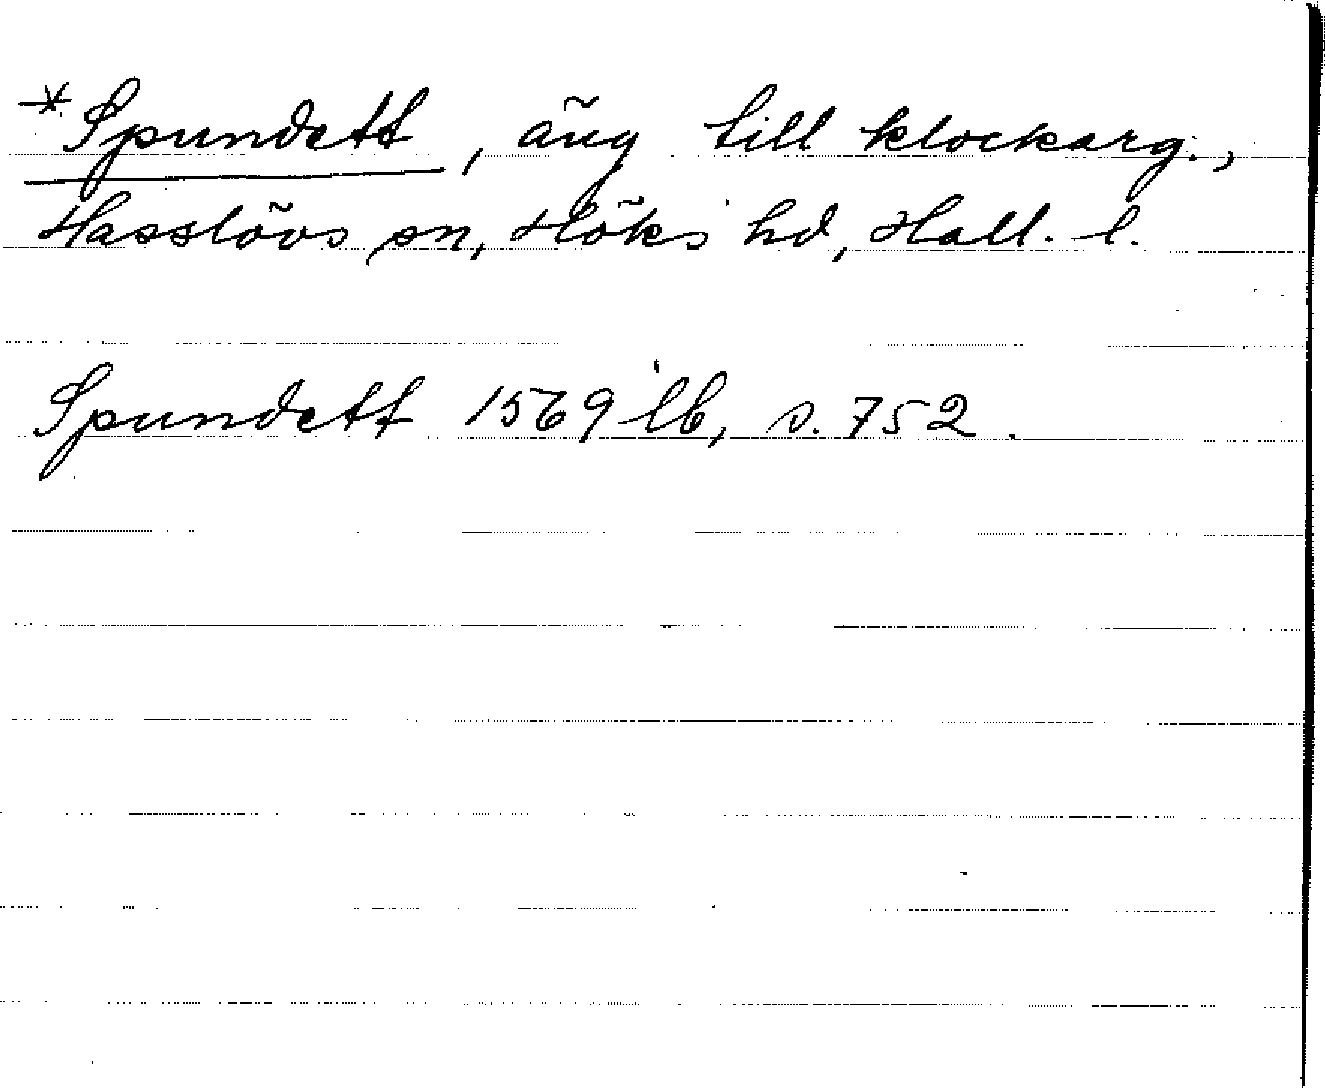 *Spundett, äng till klockarg.,
Hasslövs sn, Höks hd, Hall. l.
Spundett 1569 lb, s. 752.